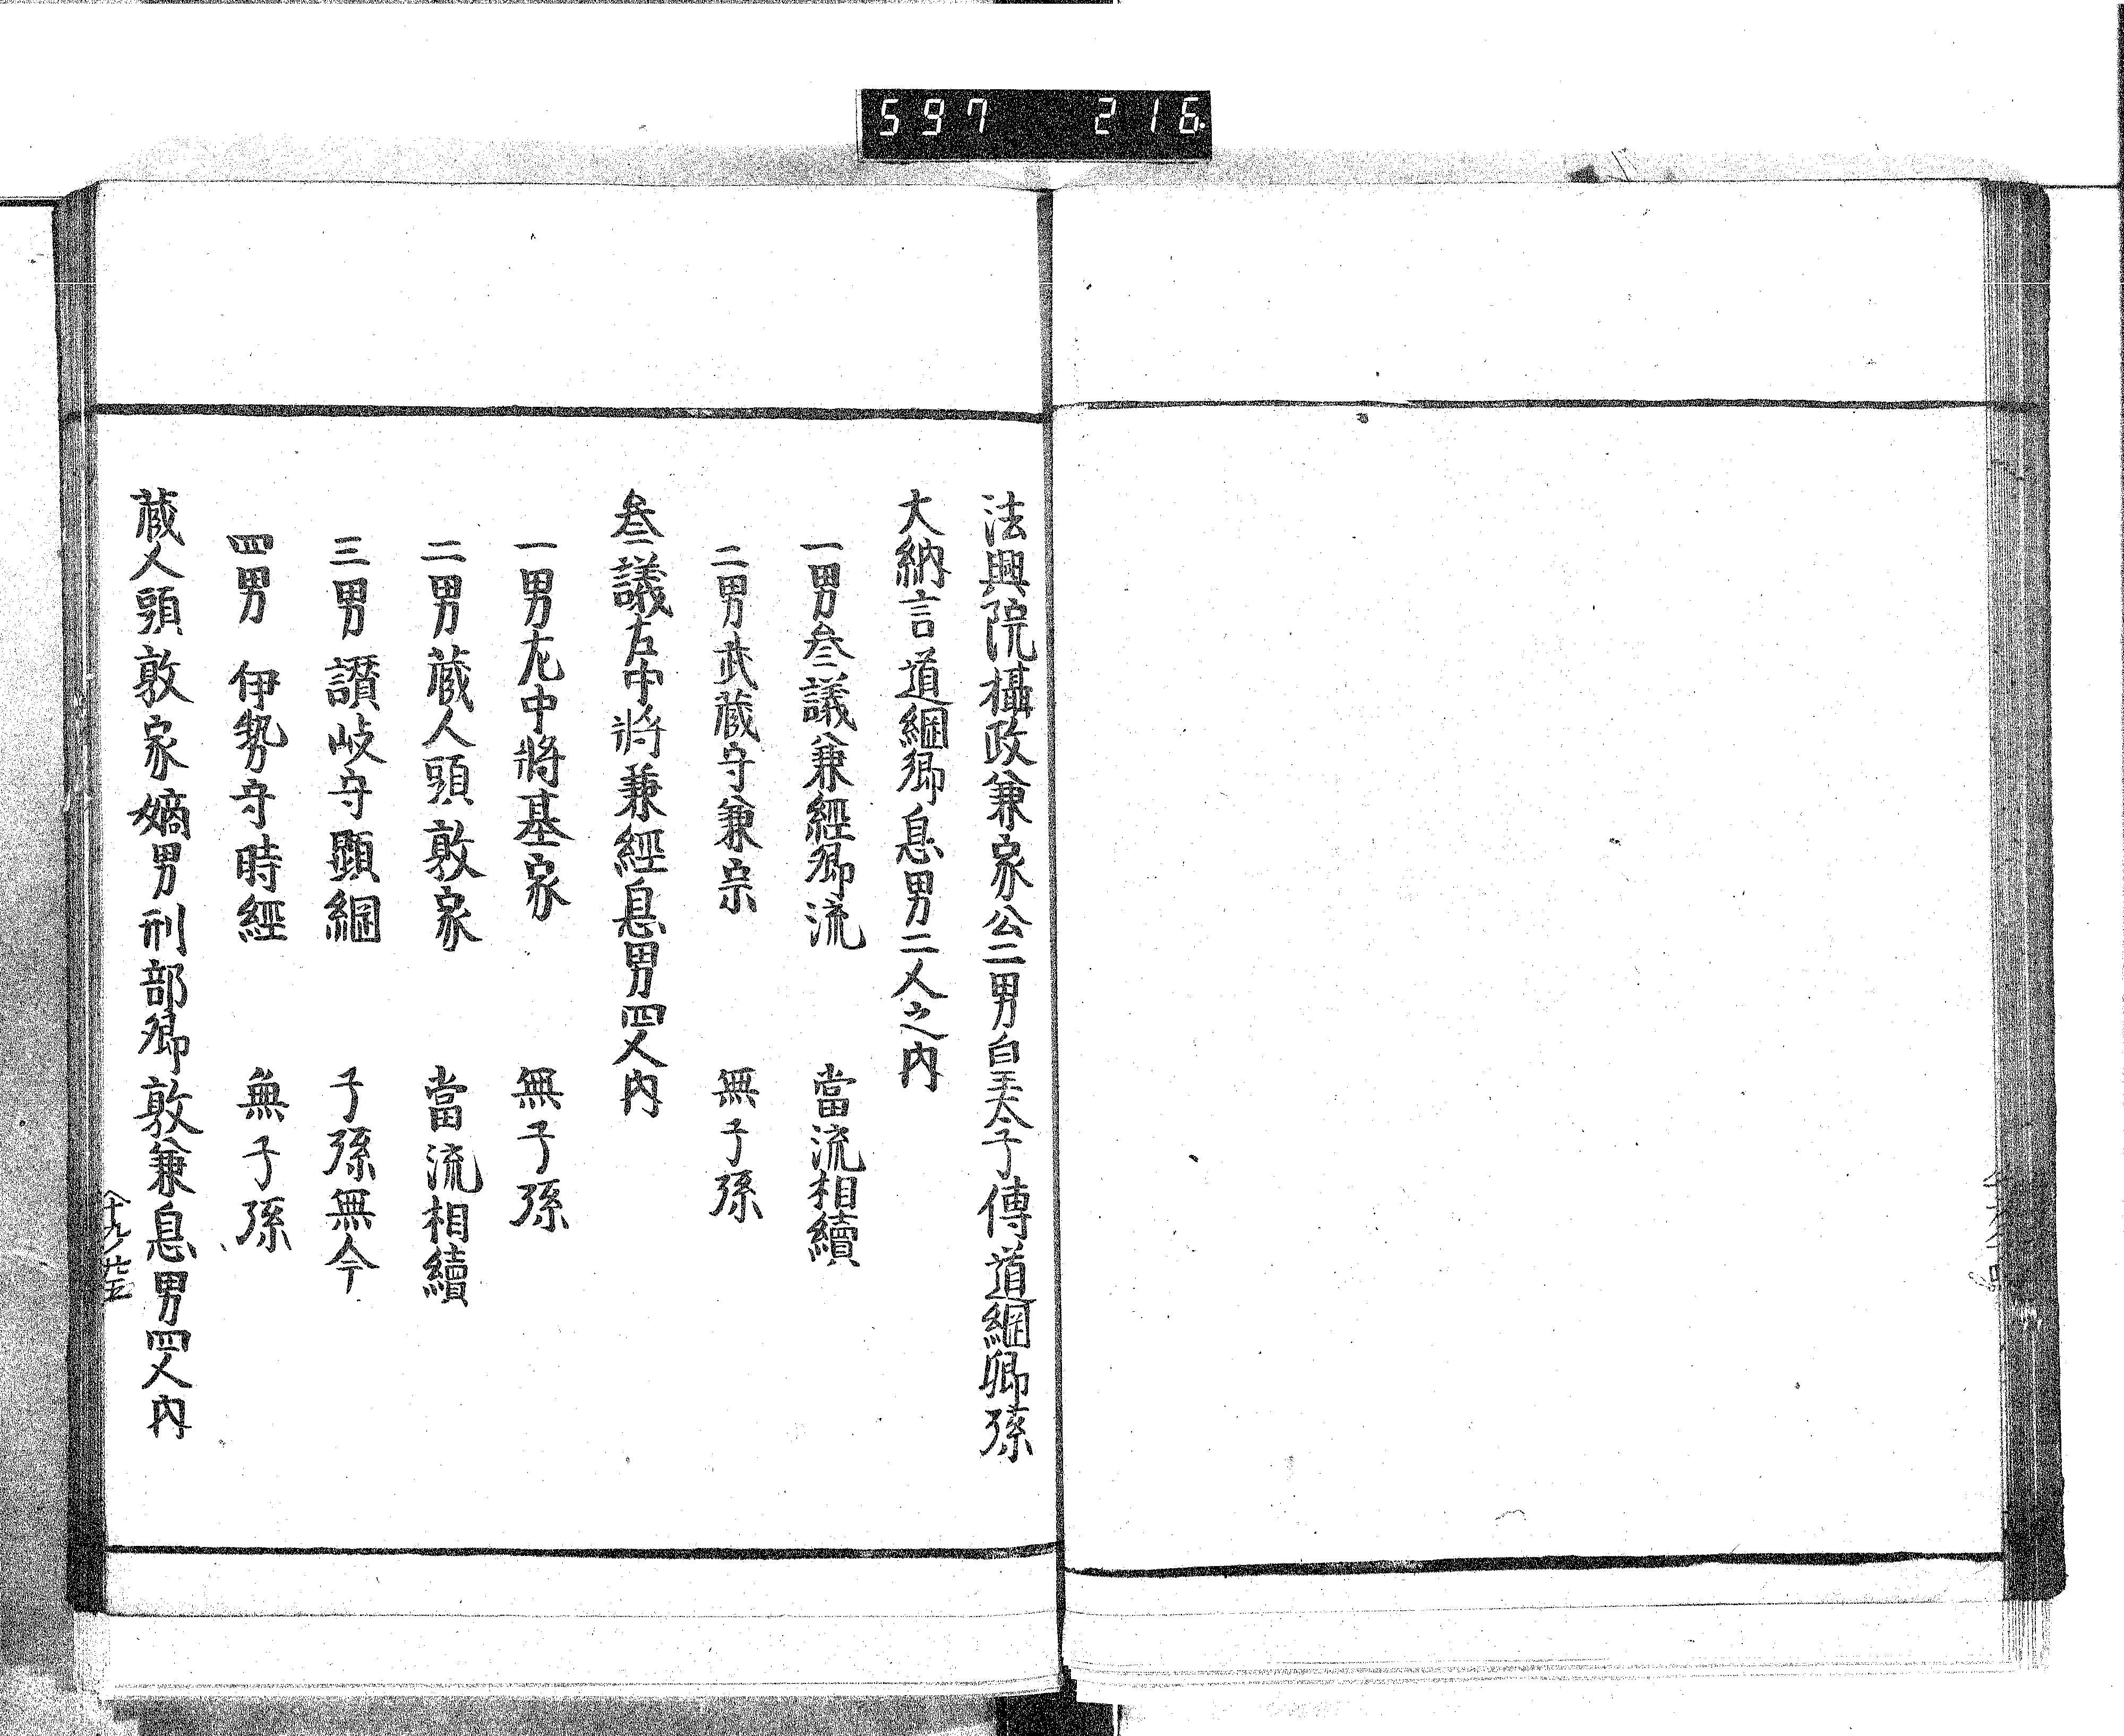 597 216
法興院攝政兼家公二男皇太子傅道綱卿孫
大納言道綱卿息男二人之内
一男叅議兼經卿流 當流相續
二男武藏守兼宗 無子孫
叅議右中將兼經息男四人内
一男左中將基家 無子孫
二男藏人頭敦家 當流相續
三男讃岐守顯綱 子孫無今
四男 伊勢守時經 無子孫
藏人頭敦家嫡男刑部卿敦兼息男四人内